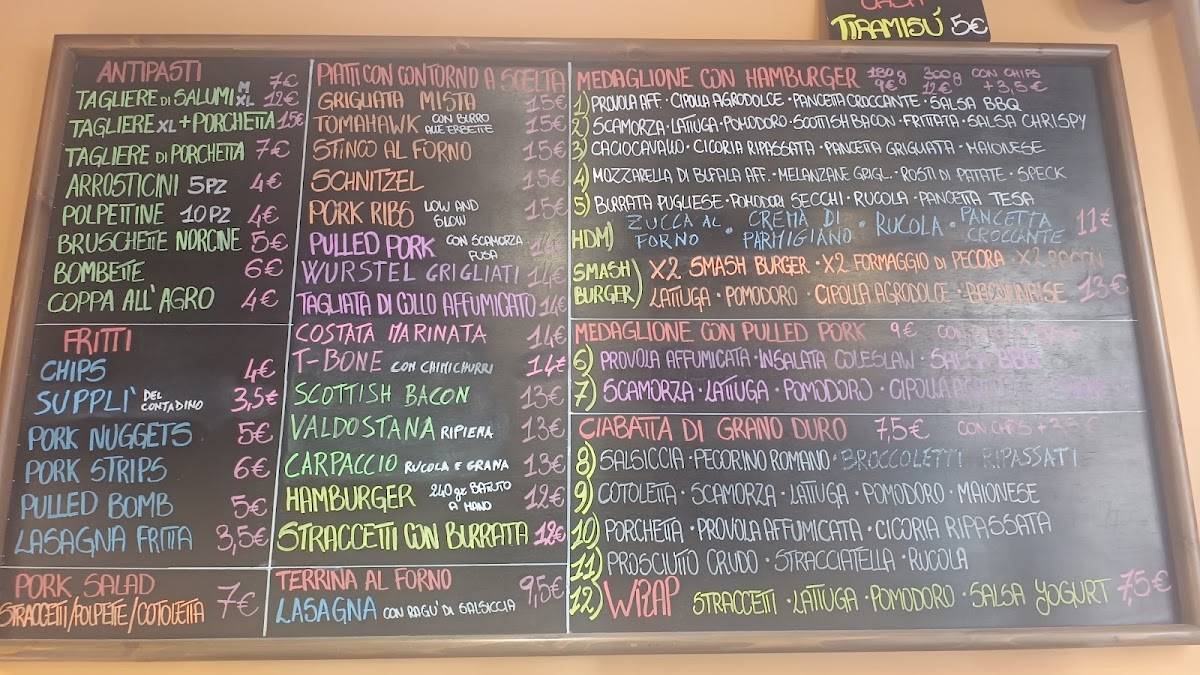 CASA
TIRAMISÚ 5€
ANTIPASTI
TAGLIERE DI SALUMI M 7€
XL 12€
TAGLIERE XL + PORCHETTA 15€
TAGLIERE DI PORCHETTA 7€
ARROSTICINI 5PZ 4€
POLPETTINE 10PZ 4€
BRUSCHETTE NORCINE 5€
BOMBETTE 6€
COPPA ALL'AGRO 4€
FRITTI
CHIPS 4€
SUPPLI' DEL CONTADINO 3,5€
PORK NUGGETS 5€
PORK STRIPS 6€
PULLED BOMB 5€
LASAGNA FRITTA 3,5€
PORK SALAD
STRACCETTI/POLPETTE/COTOLETTA 7€
PIATTI CON CONTORNO A SCELTA
GRIGLIATA MISTA 15€
TOMAHAWK CON BURRO ALLE ERBETTE 15€
STINCO AL FORNO 15€
SCHNITZEL 15€
PORK RIBS LOW AND SLOW 15€
PULLED PORK CON SCAMORZA FUSA 14€
WURSTEL GRIGLIATI 14€
TAGLIATA DI COLLO AFFUMICATO 14€
COSTATA MARINATA 14€
T-BONE CON CHIMICHURRI 14€
SCOTTISH BACON 13€
VALDOSTANA RIPIENA 13€
CARPACCIO RUCOLA E GRANA 13€
HAMBURGER 240gr BATTUTO A MANO 12€
STRACCETTI CON BURRATA 12€
TERRINA AL FORNO
LASAGNA CON RAGU' DI SALSICCIA 9,5€
MEDAGLIONE CON HAMBURGER 180g 9€ 300g 12€ CON CHIPS +3,5€
1) PROVOLA AFF. · CIPOLLA AGRODOLCE · PANCETTA CROCCANTE · SALSA BBQ
2) SCAMORZA · LATTUGA · POMODORO · SCOTTISH BACON · FRITTATA · SALSA CHRISPY
3) CACIOCAVALLO · CICORIA RIPASSATA · PANCETTA GRIGLIATA · MAIONESE
4) MOZZARELLA DI BUFALA AFF. · MELANZANE GRIGL. · ROSTI DI PATATE · SPECK
5) BURRATA PUGLIESE · POMODORI SECCHI · RUCOLA · PANCETTA TESA
HDM) ZUCCA AL FORNO · CREMA DI PARMIGIANO · RUCOLA · PANCETTA CROCCANTE 11€
SMASH BURGER) X2 SMASH BURGER · X2 FORMAGGIO DI PECORA · X2 BACON
LATTUGA · POMODORO · CIPOLLA AGRODOLCE · BACONNAISE 13€
MEDAGLIONE CON PULLED PORK 9€ CON
6) PROVOLA AFFUMICATA · INSALATA COLESLAW · SALSA BBQ
7) SCAMORZA · LATTUGA · POMODORO · CIPOLLA
CIABATTA DI GRANO DURO 7,5€ CON CHIPS +3,5€
8) SALSICCIA · PECORINO ROMANO · BROCCOLETTI RIPASSATI
9) COTOLETTA · SCAMORZA · LATTUGA · POMODORO · MAIONESE
10) PORCHETTA · PROVOLA AFFUMICATA · CICORIA RIPASSATA
11) PROSCIUTTO CRUDO · STRACCIATELLA · RUCOLA
12) WRAP STRACCETTI · LATTUGA · POMODORO · SALSA YOGURT 7,5€